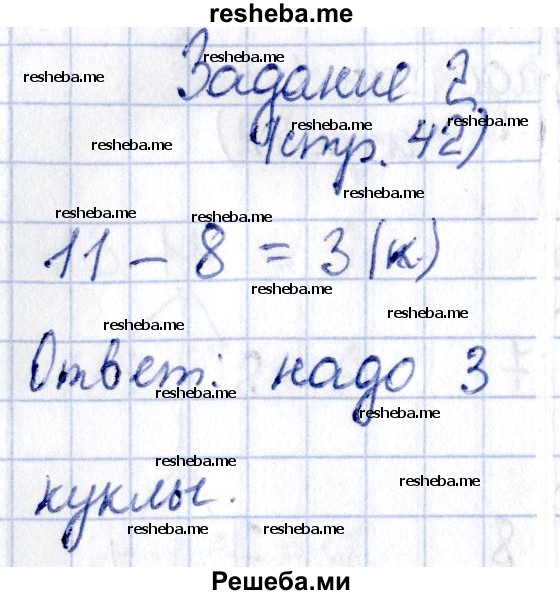 resheba.me
resheba.me
resheba.me
Задание 2
resheba.me
resheba.me
(стр. 42)
resheba.me
resheba.me
resheba.me
resheba.me
11 - 8 = 3 (к)
resheba.me
resheba.me
resheba.me
Ответ: надо 3
resheba.me
resheba.me
resheba.me
resheba.me
куклы.
resheba.me
resheba.me
Решеба.ми